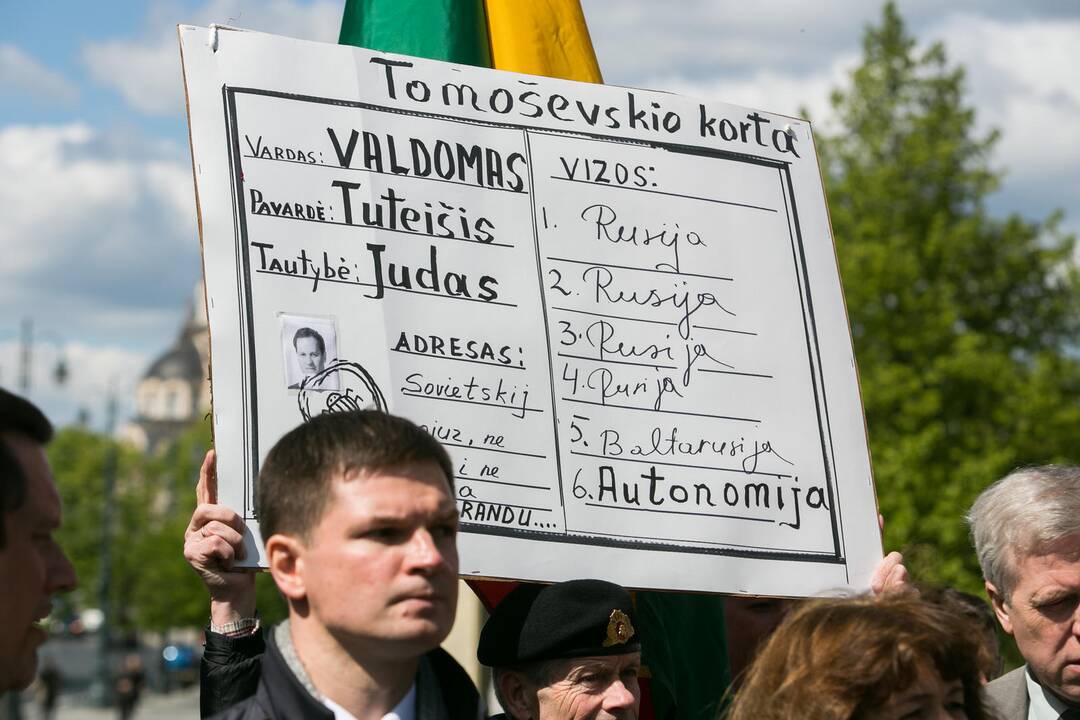 Tomoševskio korta
VARDAS: VALDOMAS
PAVARDĖ: Tuteišis
Tautybė: Judas
ADRESAS:
Sovietskij
ne
i ne
a
RANDU....
VIZOS:
1. Rusija
2. Rusija
3. Rusija
4. Rusija
5. Baltarusija
6. Autonomija